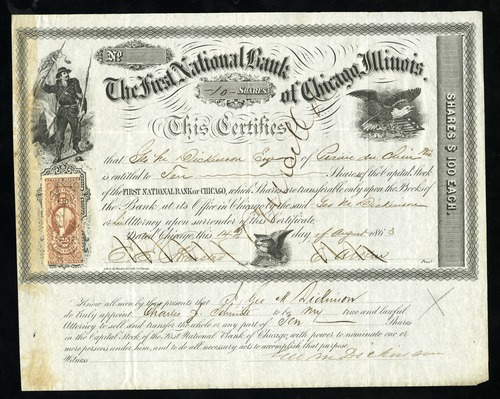 No
The First National Bank
of Chicago, Illinois.
10 SHARES
This Certifies
that Geo M. Dickinson Esq of Prairie du Chien Wis
is entitled to Ten Shares, of the Capital Stock
of the FIRST NATIONAL BANK OF CHICAGO, which Shares are transferable only upon the Books
of the Bank, at its Office in Chicago by the said Geo M. Dickinson
or his Attorney upon surrender of this Certificate.
Dated Chicago, this 14th day of August 1863
E. Aiken
SHARES $100 EACH.
Know all men by these presents that I, Geo M. Dickinson
do truly appoint Charles J. Schmidt to be my true and lawful
Attorney to sell and transfer the whole or any part of Ten Shares
in the Capital Stock of the First National Bank of Chicago, with power to nominate one or
more persons under him, and to do all necessary acts to accomplish that purpose.
Witness
Geo M Dickinson